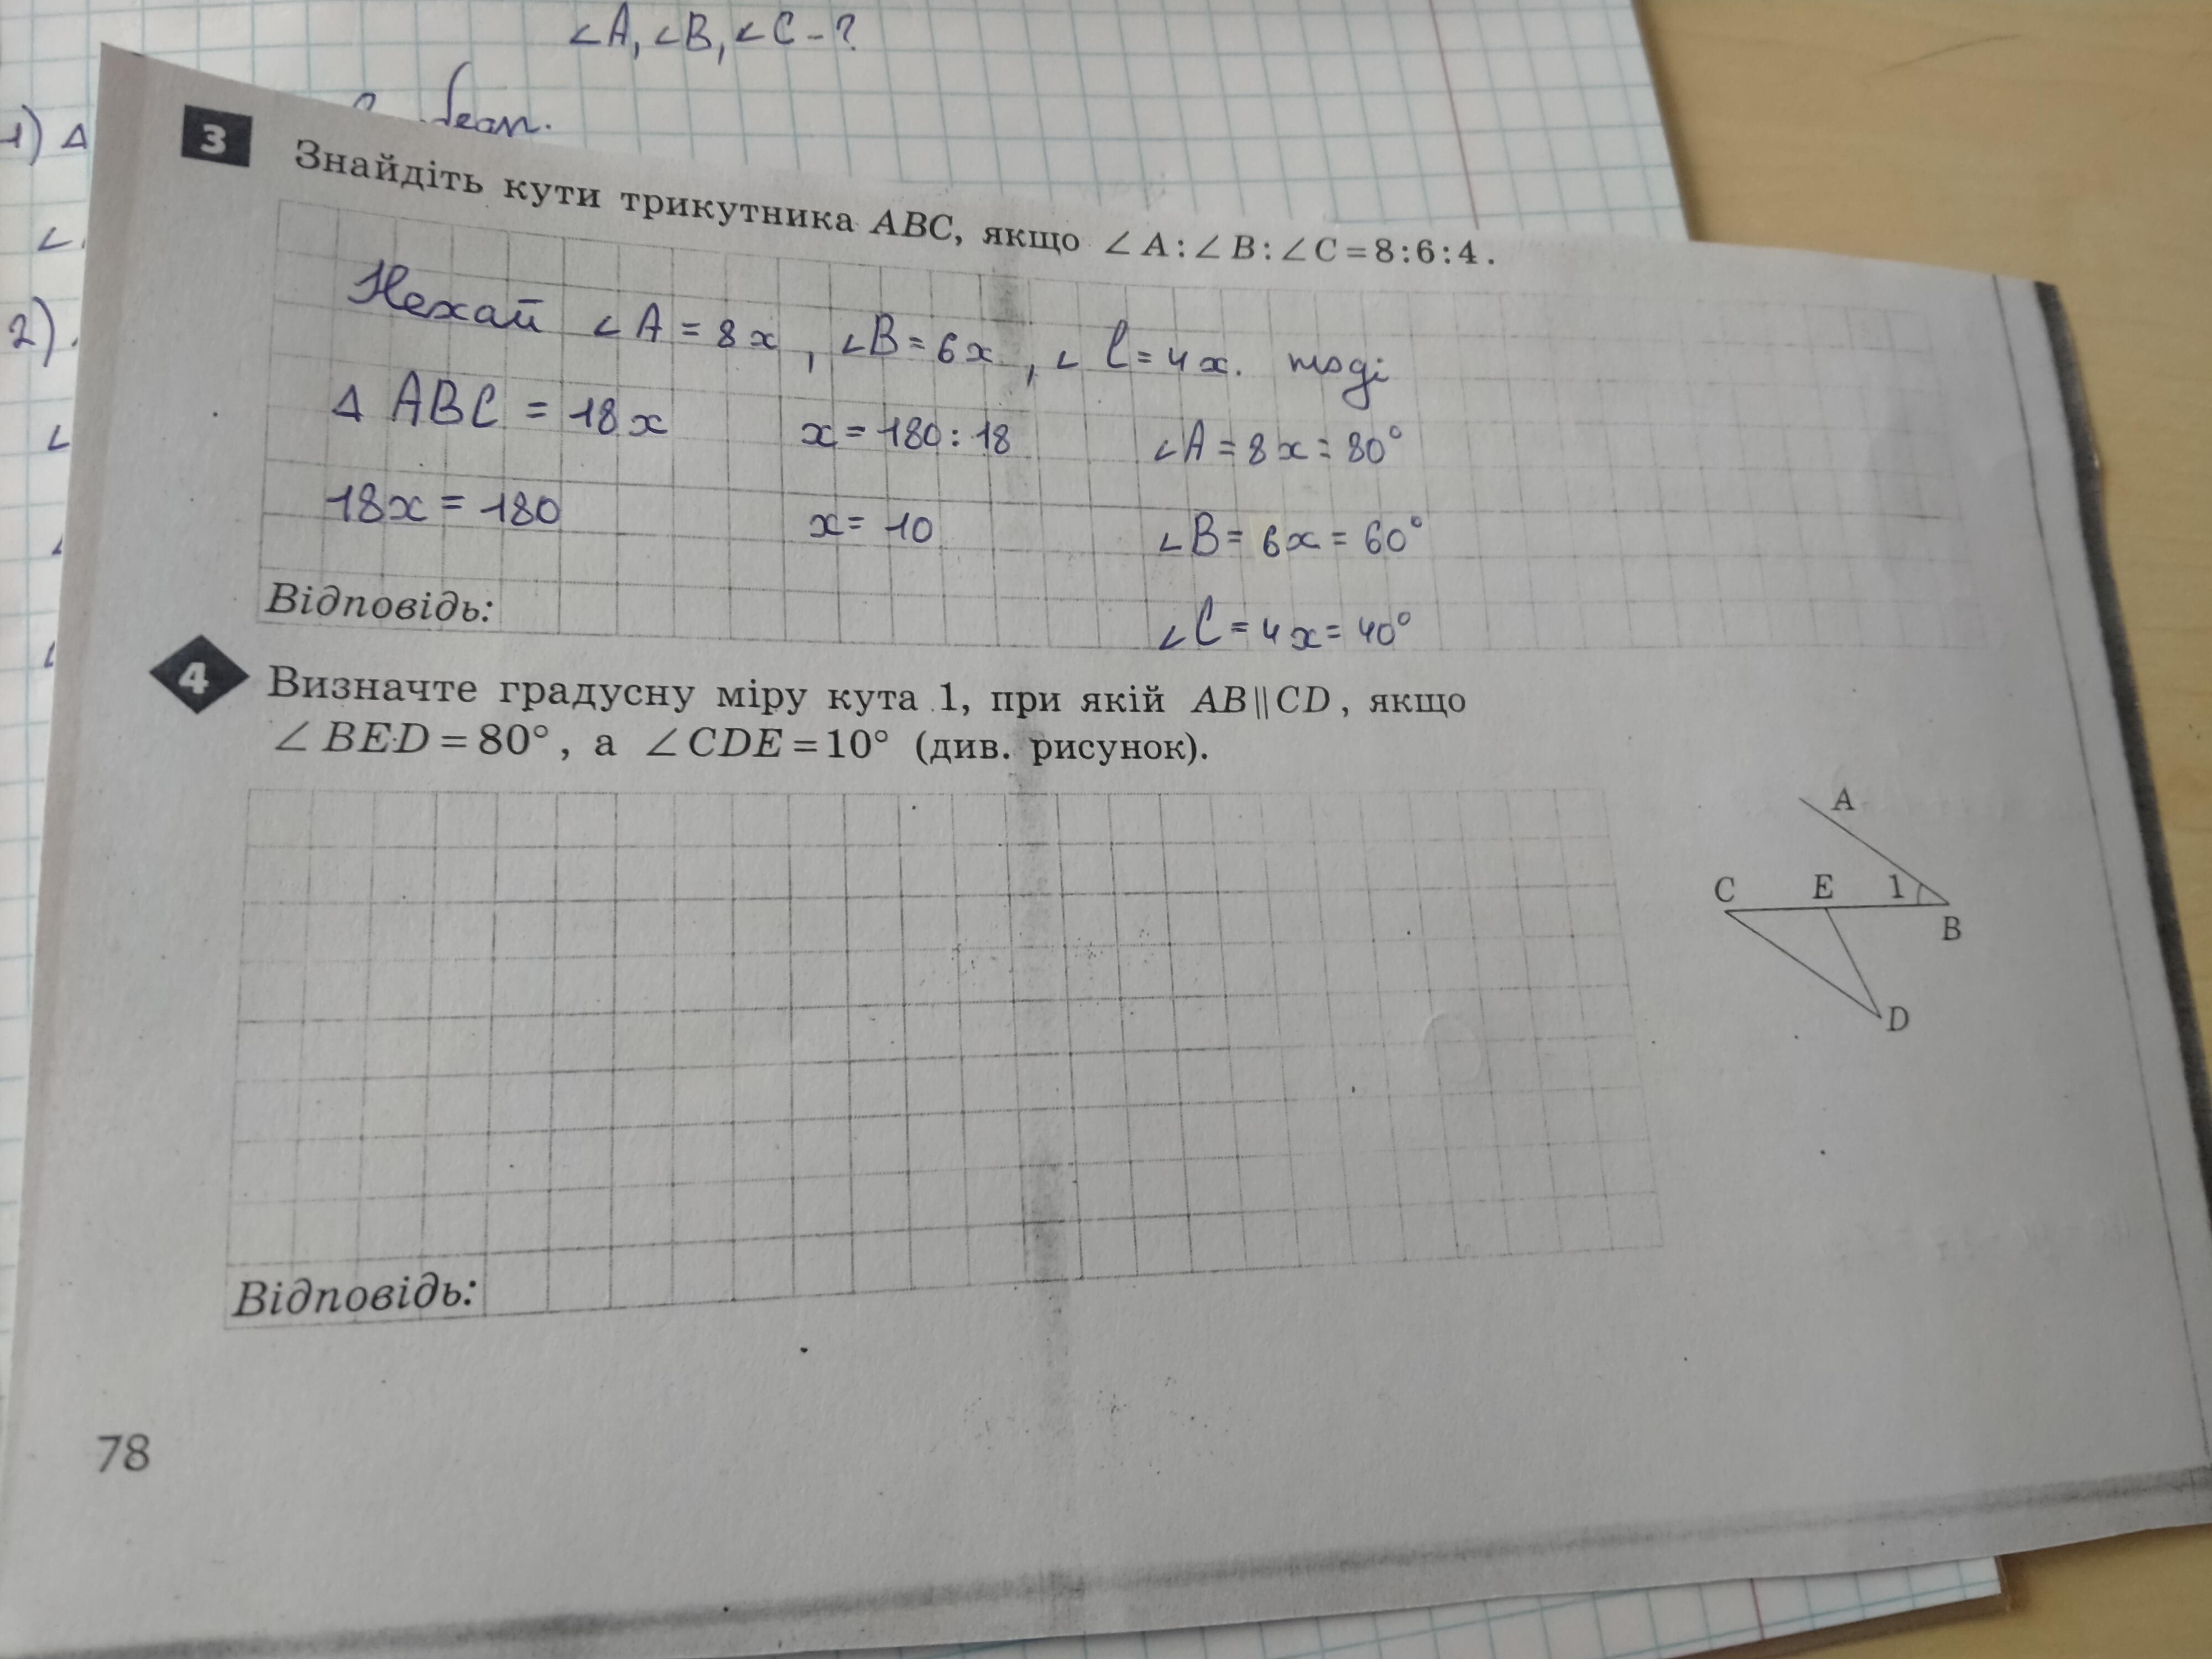 ∠A, ∠B, ∠C - ?
1) Δ
3 Знайдіть кути трикутника ABC, якщо ∠A:∠B:∠C=8:6:4.
∠
2)
Нехай ∠A = 8x, ∠B = 6x, ∠C = 4x. тоді
Δ ABC = 18x x = 180 : 18 ∠A = 8x = 80°
∠
18x = 180 x = 10 ∠B = 6x = 60°
Відповідь: ∠C = 4x = 40°
4 Визначте градусну міру кута 1, при якій AB∥CD, якщо
∠BED=80°, а ∠CDE=10° (див. рисунок).
A
C E 1
B
D
Відповідь:
78